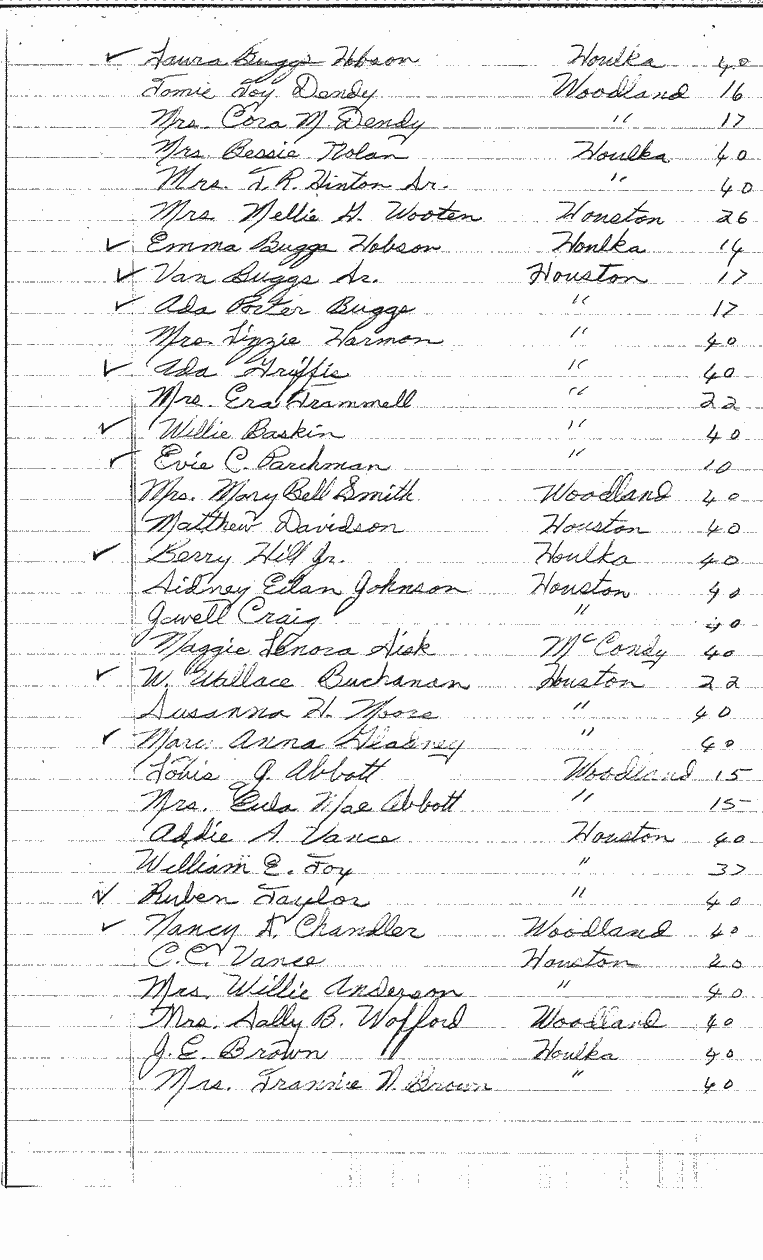 ✓ Laura Buggs Hobson Houlka 40
Tomie Foy Dendy Woodland 16
Mrs. Cora M Dendy " 17
Mrs Bessie Nolan Houlka 40
Mrs. T.R. Hinton Sr. " 40
Mrs Nellie G. Wooten Houston 26
✓ Emma Buggs Hobson Houlka 14
✓ Van Buggs Sr. Houston 17
✓ Ada Porter Buggs " 17
Mrs. Lizzie Harmon " 40
✓ Ada Griffis " 40
Mrs. Era Trammell " 22
✓ Willie Baskin " 40
✓ Evie C. Parchman " 10
Mrs. Mary Bell Smith Woodland 40
Matthew Davidson Houston 40
✓ Berry Hill Jr. Houlka 40
Sidney Johnson Houston 40
Jewell Craig " 40
Maggie Lenora Sisk McCondy 40
✓ W. Wallace Buchanan Houston 22
Susanna H. Moore " 40
✓ Anna " 40
J. Abbott Woodland 15
Mrs. Eula Mae Abbott " 15
Addie A. Vance Houston 40
William E. Foy " 37
✓ Ruben Taylor " 40
✓ Nancy A. Chandler Woodland 40
C.C. Vance Houston 20
Mrs. Willie Anderson " 40
Mrs. Sally B. Wofford Woodland 40
J.E. Brown Houlka 40
Mrs. Frannie N. Brown " 40